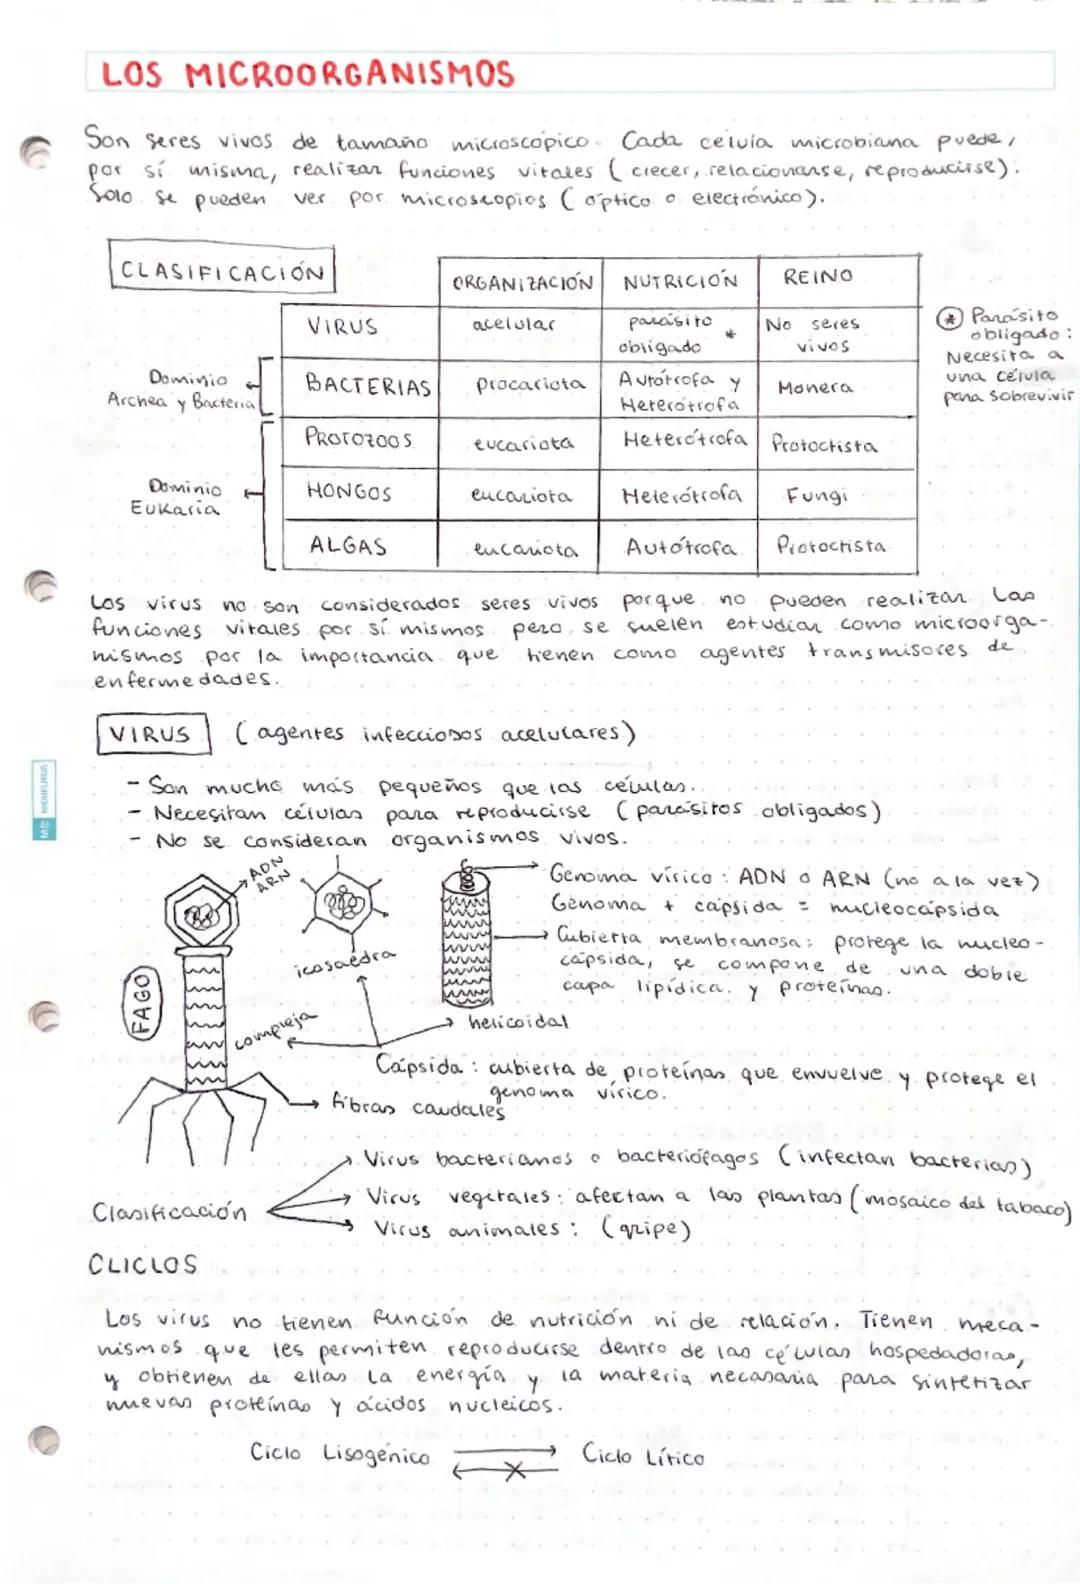 LOS MICROORGANISMOS
Son seres vivos de tamaño microscópico. Cada célula microbiana puede,
por sí misma, realizar funciones vitales (crecer, relacionarse, reproducirse).
Solo se pueden ver por microscopios (óptico o electrónico).
CLASIFICACIÓN
ORGANIZACIÓN NUTRICIÓN REINO
VIRUS acelular parásito obligado * No seres vivos
BACTERIAS procariota Autótrofa y Heterótrofa Monera
PROTOZOOS eucariota Heterótrofa Protoctista
HONGOS eucariota Heterótrofa Fungi
ALGAS eucariota Autótrofa Protoctista
Dominio
Archea y Bacteria
Dominio
Eukaria
* Parásito
obligado:
Necesita a
una célula
para sobrevivir
Los virus no son considerados seres vivos porque no pueden realizar las
funciones vitales por sí mismos pero, se suelen estudiar como microorga-
nismos por la importancia que tienen como agentes transmisores de
enfermedades.
VIRUS (agentes infecciosos acelulares)
- Son mucho más pequeños que las células.
- Necesitan células para reproducirse (parásitos obligados)
- No se consideran organismos vivos.
ADN
ARN
Genoma vírico: ADN o ARN (no a la vez)
Genoma + cápsida = nucleocápsida
Cubierta membranosa: protege la nucleo-
cápsida, se compone de una doble
capa lipídica y proteínas.
icosaédra
FAGO
compleja
helicoidal
Cápsida: cubierta de proteínas que envuelve y protege el
genoma vírico.
fibras caudales
Clasificación
Virus bacterianos o bacteriófagos (infectan bacterias)
Virus vegetales: afectan a las plantas (mosaico del tabaco)
Virus animales: (gripe)
CLICLOS
Los virus no tienen función de nutrición ni de relación. Tienen meca-
nismos que les permiten reproducirse dentro de las células hospedadoras,
y obtienen de ellas la energía y la materia necesaria para sintetizar
nuevas proteínas y ácidos nucleicos.
Ciclo Lisogénico Ciclo Lítico
MIQUELRIUS